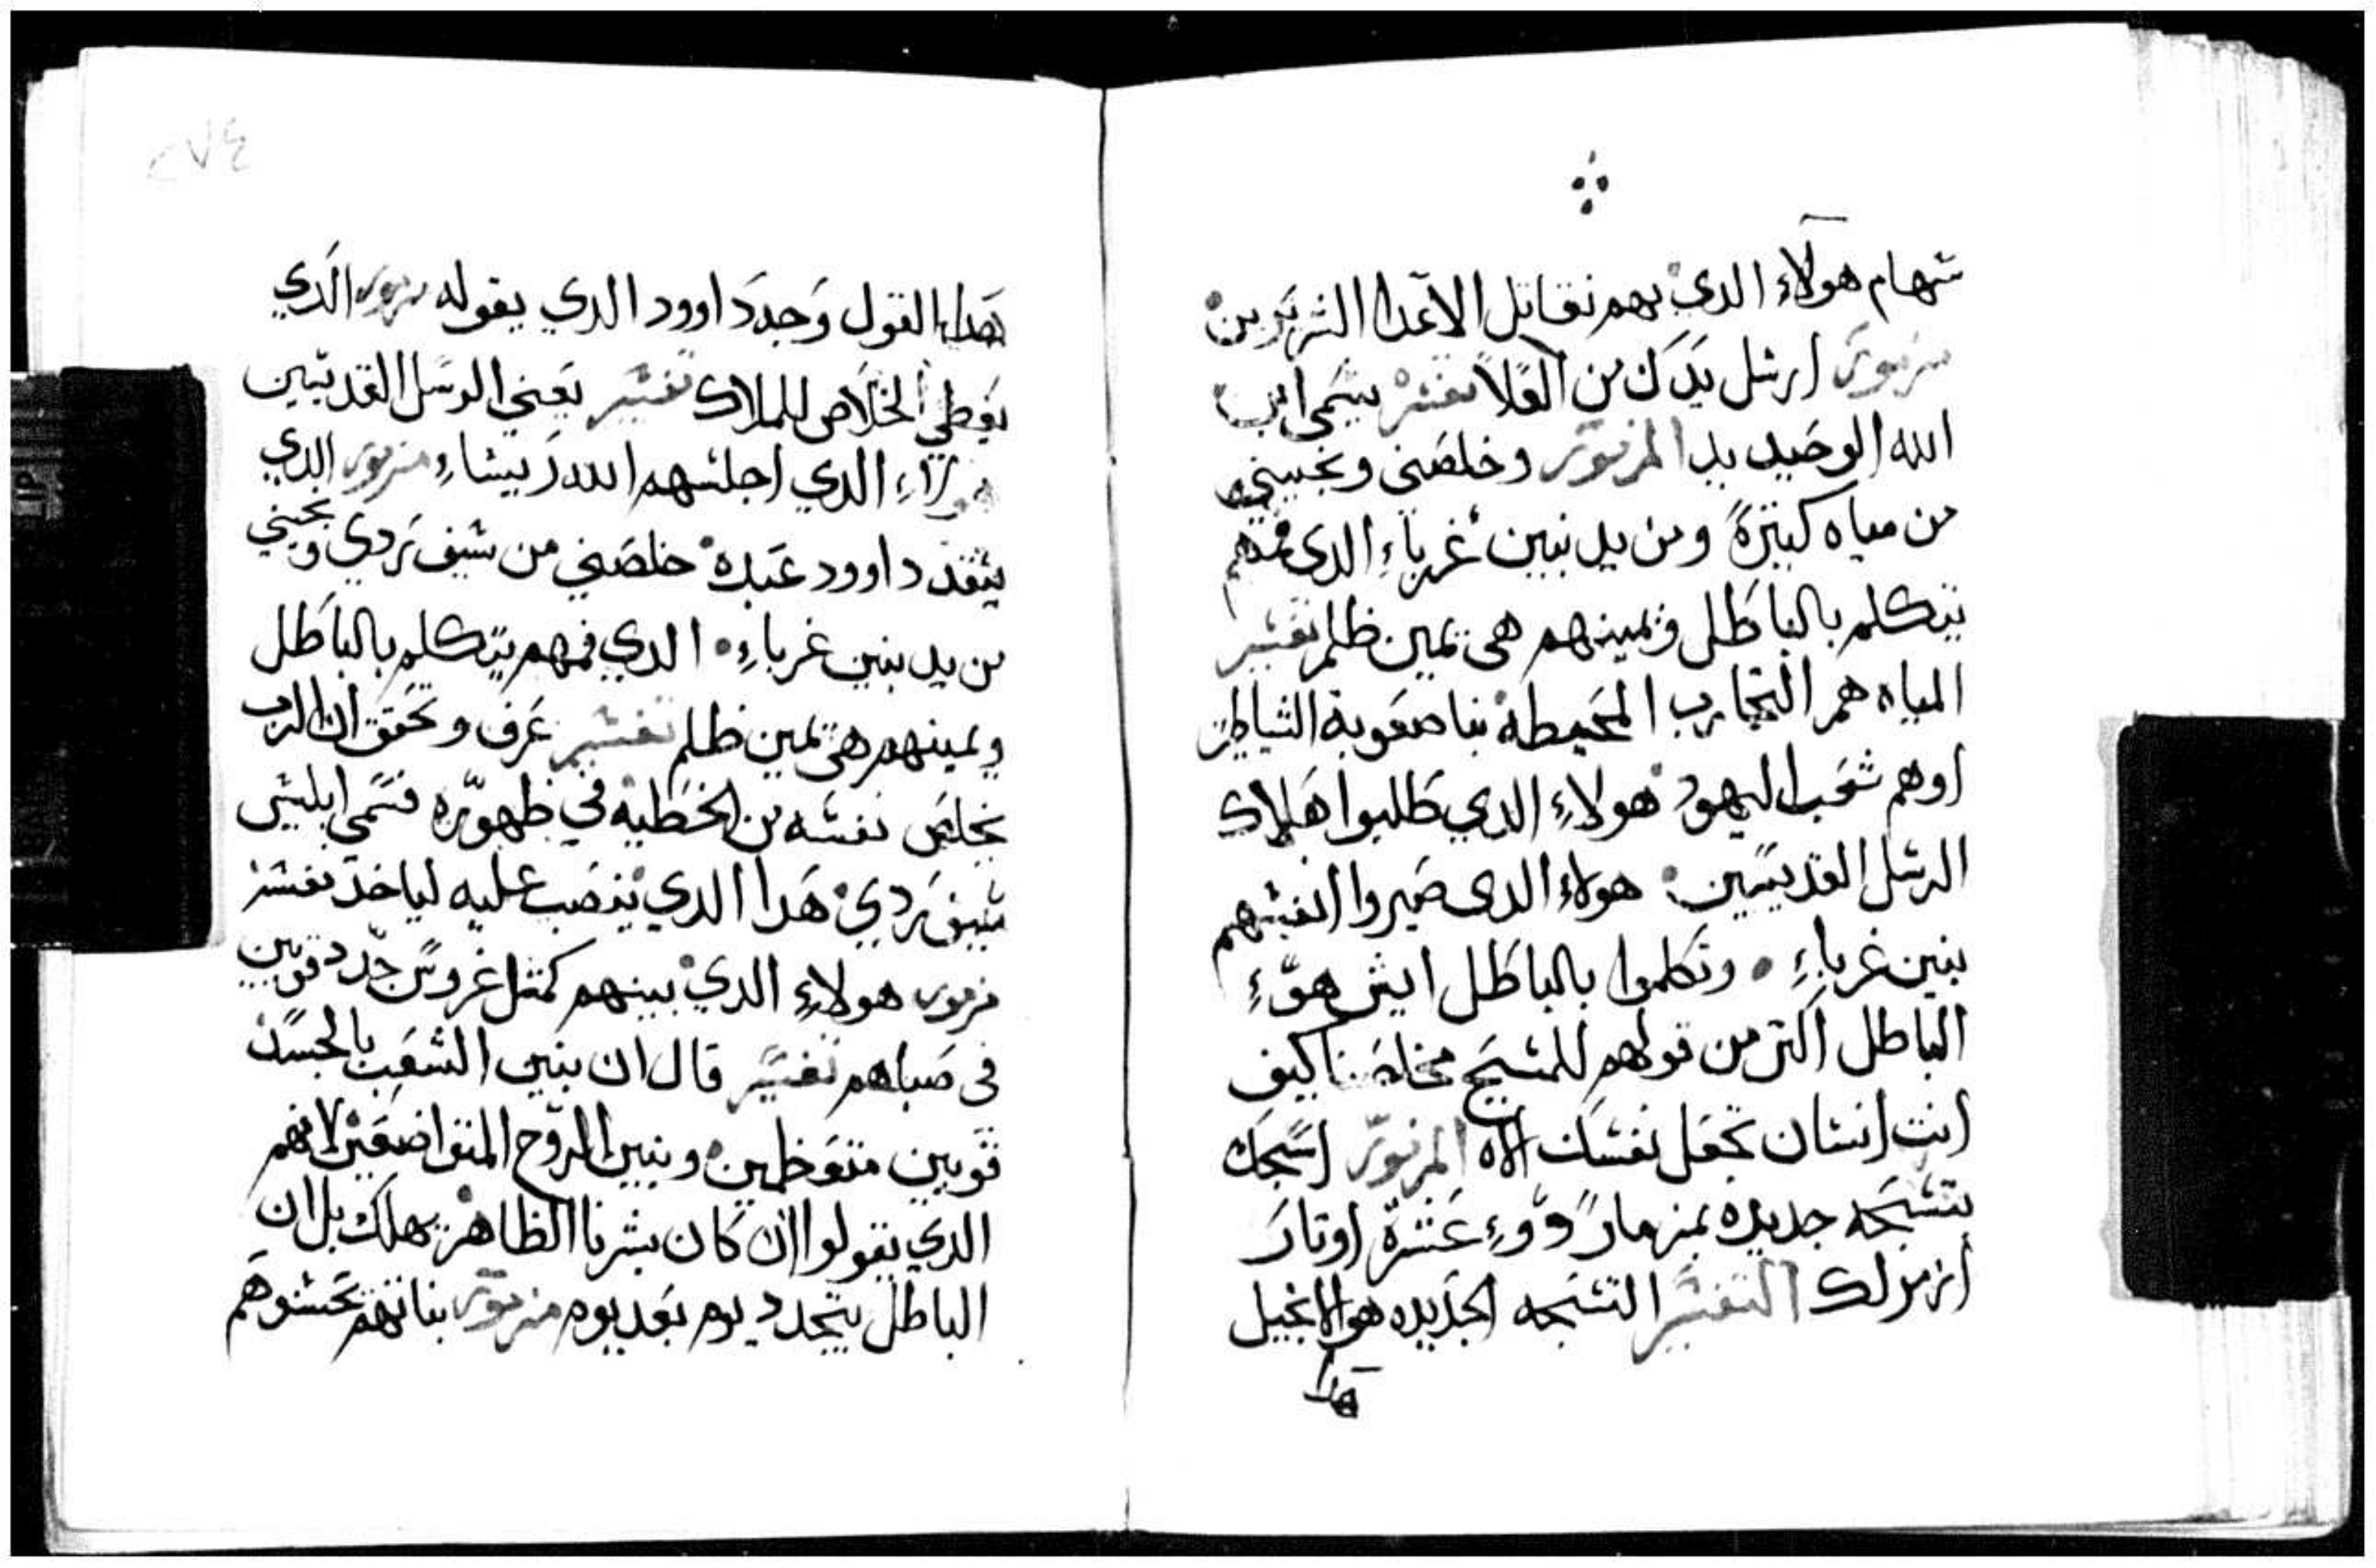 سهام هولاء الدي بهم نقاتل الاعدا الشريرين
مزمور ارسل يدك من العلا تفسير يسمى ابن
الله الوحيد يد المزمور وخلصني ونجيني
من مياه كتيرة ومن يد بنين غرباء الدى فمهم
يتكلم بالباطل ويمينهم هى يمين ظلم تفسير
المياه هم التجارب المحيطة بنا صعوبة الشياطين
اوهم شعب اليهود هولاء الدي طلبوا هلاك
الرسل القديسين هولاء الدى صيروا انفسهم
بنين غرباء وتكلموا بالباطل ايش هوء
الباطل اكتر من قولهم للمسيح مخلصنا كيف
انت انسان تجعل نفسك الاه المزمور اسبحك
بتسبحه جديده بمزمار دوء عشرة اوتار
ازمر لك التفسير التسبحه الجديده هو الانجيل
هدا
٢٧٤
هدا القول وجد داوود الدي يقوله مزمور الدي
يعطي الخلاص للملاك تفسير يعني الرسل القديسين
هولاء الدي اجلسهم الله رييساء مزمور الدي
ينقد داوود عبده خلصني من سيف ردي ونجيني
من يد بنين غرباء الدي فمهم يتكلم بالباطل
ويمينهم هى يمين ظلم تفسير عرف وتحقق ان الرب
يخلص نفسه من الخطيه في ظهوره فسمى ابليس
سيف ردي هدا الدي ينصب عليه لياخد نفسه
مزمور هولاء الدي بينهم كمتل غروس جدد قويين
فى صباهم تفسير قال ان بنين الشعب بالجسد
قويين متعظمين وبنين الروح المتواضعين لانهم
الدي يقولوا ان كان بشرنا الظاهر يهلك بل ان
الباطن يتجدد يوم بعد يوم مزمور بناتهم محسنوهم